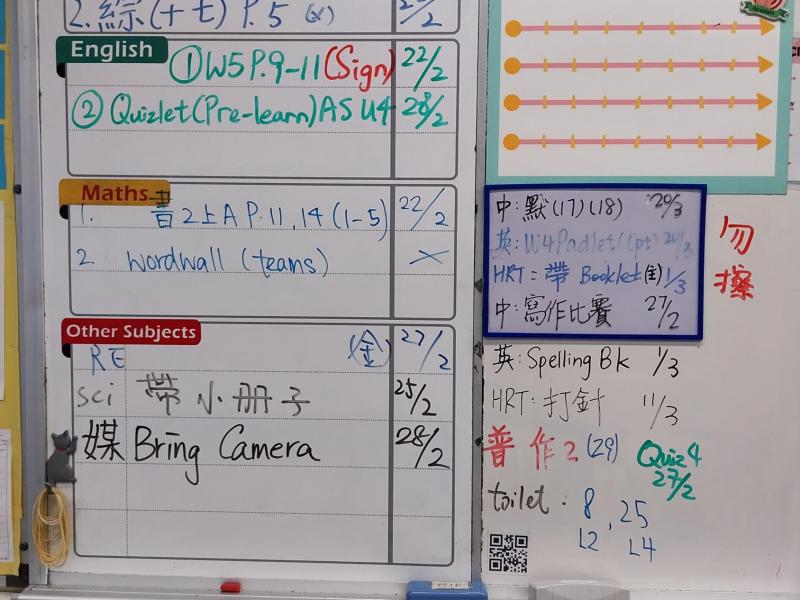 2. 綜(十七) P.5 (x) 2/2
English
① W5 P.9-11 (Sign) 22/2
② Quizlet (Pre-learn) AS U4 28/2
Maths
1. 書2上A P.11, 14 (1-5) 22/2
2 Wordwall (teams) ×
Other Subjects
RE (金) 27/2
sci 帶小冊子 25/2
媒 Bring Camera 28/2
中:默(17)(18) 20/3
英: W4 Padlet (Opt) 20/3
HRT: 帶 Booklet 1/3
中:寫作比賽 27/2
勿擦
英: Spelling Bk 1/3
HRT: 打針 11/3
普作2 (29)
Quiz 4
27/2
toilet. 8, 25
L2 L4